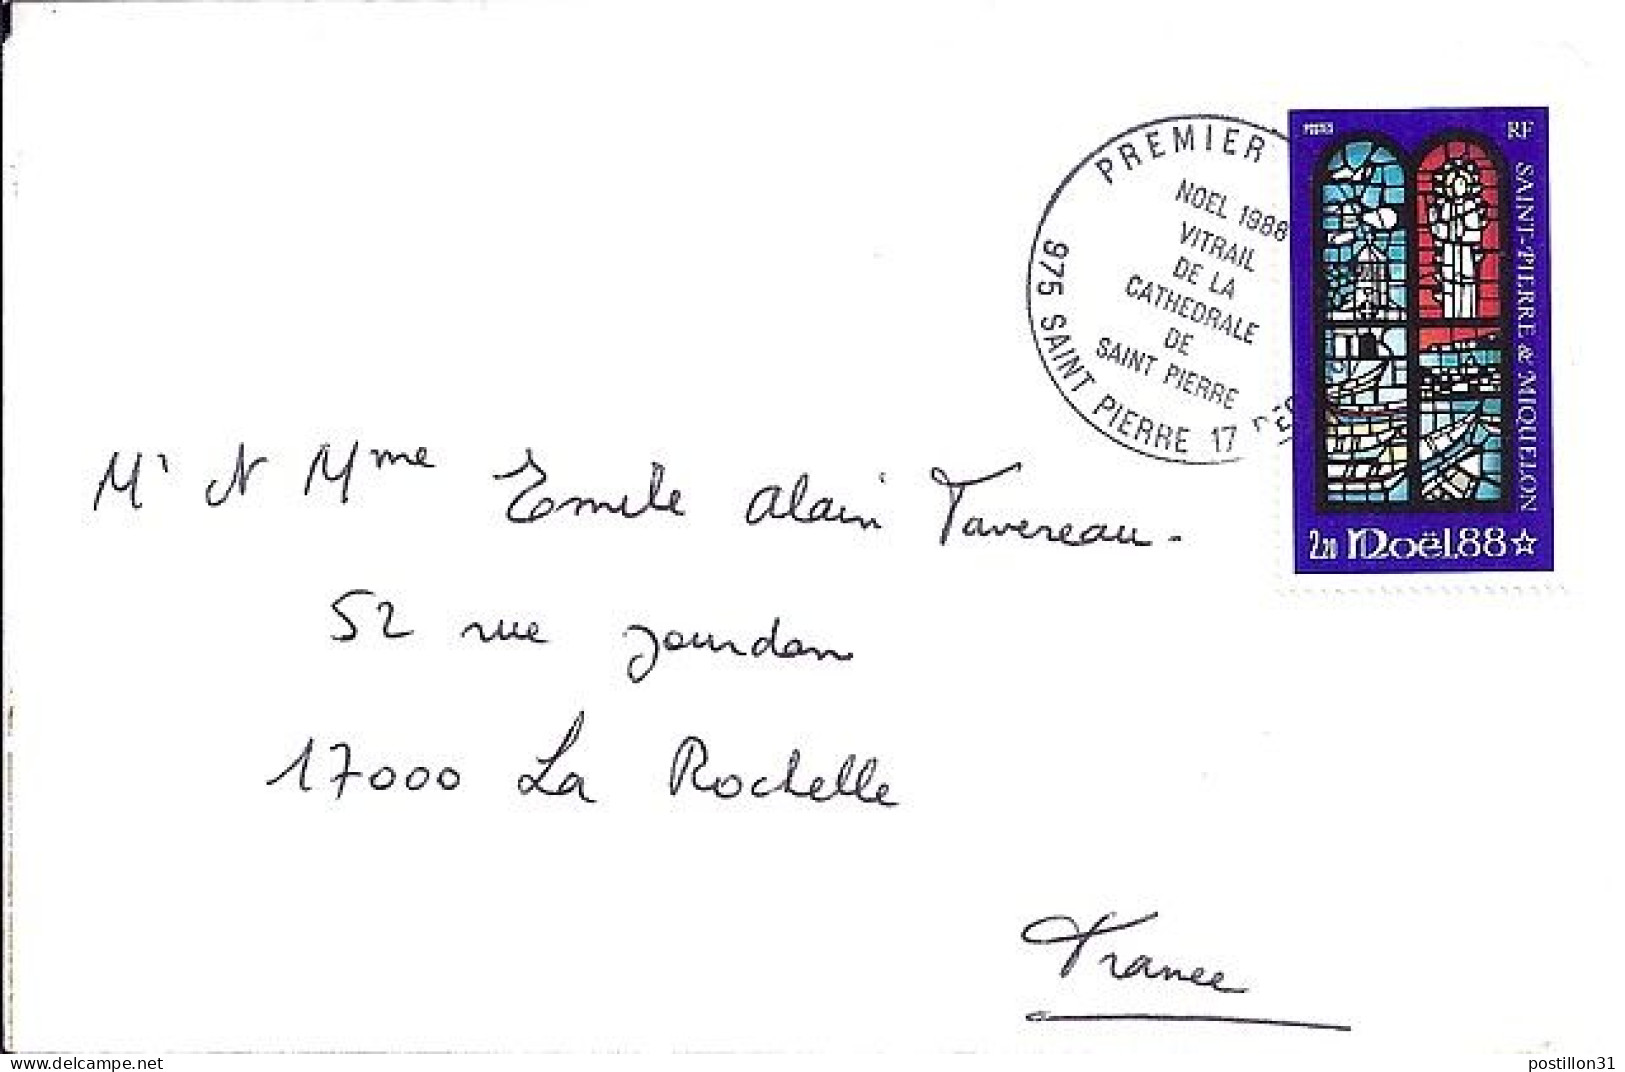 PREMIER
NOEL 1988
VITRAIL
DE LA
CATHEDRALE
DE
SAINT PIERRE
975 SAINT PIERRE 17 DEC
POSTES
RF
SAINT-PIERRE & MIQUELON
2,20 Noël.88
Mr Mme Emile Alain Tavereau.
52 rue Jourdan
17000 La Rochelle
France
delcampe.net
postillon31